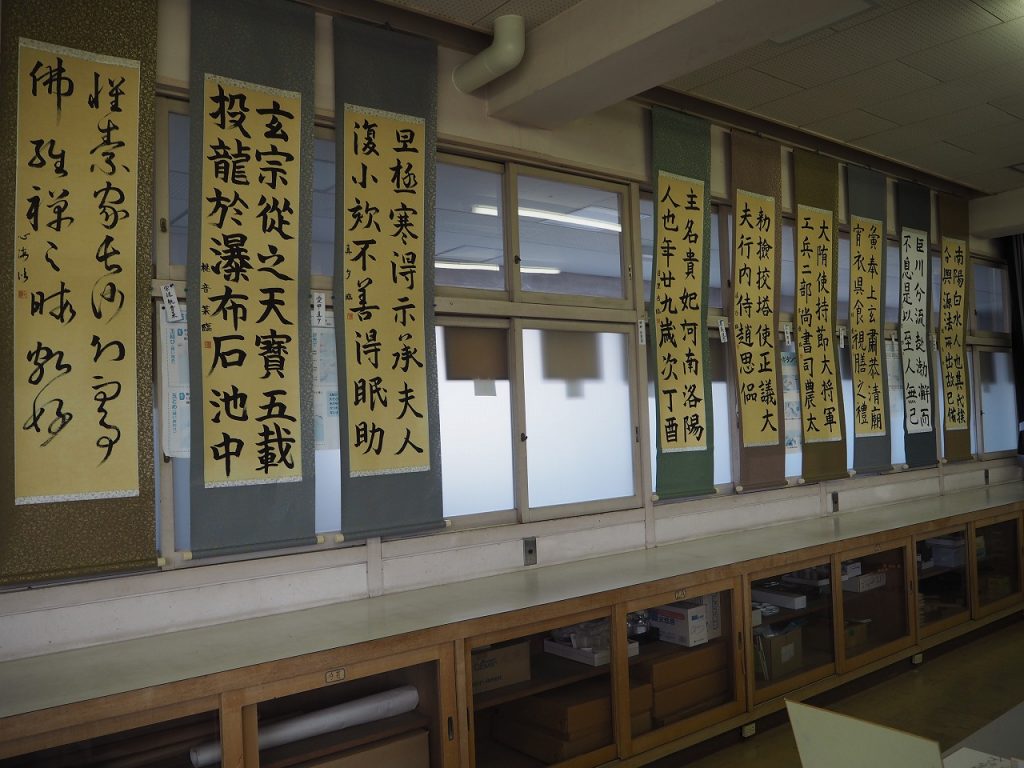 懷素家長沙幼而事
佛經禪之暇頗好
玄宗從之天寶五載
投龍於瀑布石池中
極寒得示承夫人
復小欬不善得眠助
主名貴妃河南洛陽
人也年廿九歲次丁酉
勑檢挍塔使正議大
夫行内侍趙思侶
大隋使持節大将軍
工兵二部尚書司農太
夤奉上玄肅恭清廟
宵衣食視膳之禮
巨川分流赴渤澥而
不息是以至人無己
南陽白水人也其氏族
興源流所出故已備